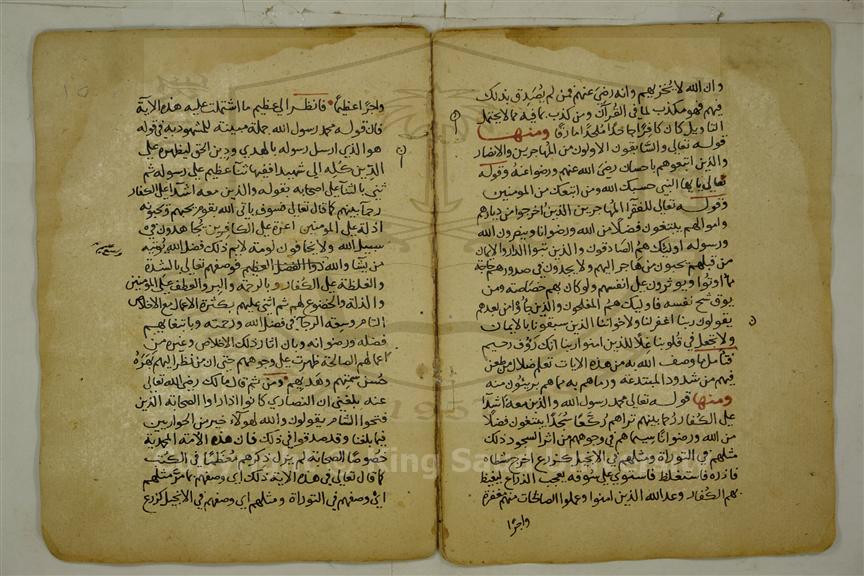 وان الله لا يخزيهم وانه رضي عنهم فمن لم يصدق بذلك
فيهم فهو مكذب لما في القرآن ومن كذب بما فيه مما لا يحتمل
التاويل كان كافرا جاحدا ملحدا مارقا ومنها
قوله تعالى والسابقون الاولون من المهاجرين والانصار
والذين اتبعوهم باحسان رضي الله عنهم ورضوا عنه وقوله
تعالى يا ايها النبي حسبك الله ومن اتبعك من المومنين
وقوله تعالى للفقرآ المهاجرين الذين اخرجوا من ديارهم
واموالهم يبتغون فضلا من الله ورضوانا وينصرون الله
ورسوله اولئك هم الصادقون والذين تبوأ الدار والايمان
من قبلهم يحبون من هاجر اليهم ولا يجدون في صدورهم حاجة
مما اوتوا ويوثرون على انفسهم ولو كان بهم خصاصة ومن
يوق شح نفسه فاوليك هم المفلحون والذين جاؤا من بعدهم
يقولون ربنا اغفر لنا ولاخواننا الذين سبقونا بالايمان
ولا تجعل في قلوبنا غلا للذين امنوا ربنا انك رؤف رحيم
فتأمل ما وصف الله به من هذه الايات تعلم ضلال من طعن
فيهم من شذوذ المبتدعة ورماهم به مما هم بريئون منه
ومنها قوله تعالى محمد رسول الله والذين معه اشدا
على الكفار رحما بينهم تراهم ركعا سجدا يبتغون فضلا
من الله ورضوانا سيماهم في وجوههم من اثر السجود ذلك
مثلهم في التوراة ومثلهم في الانجيل كزرع اخرج شطاه
فازره فاستغلظ فاستوى على سوقه يعجب الزراع ليغيظ
بهم الكفار وعد الله الذين امنوا وعملوا الصالحات منهم مغفرة
واجرا
واجرا عظيما فانظر الى عظيم ما اشتملت عليه هذه الآية
فان قوله محمد رسول الله جملة مبينة للمشهود به في قوله
هو الذي ارسل رسوله بالهدى ودين الحق ليظهره على
الدين كله الى شهيدا ففيها ثنآ عظيم على رسوله ثم
ثنى بالثنآ على اصحابه بقوله والذين معه اشدا على الكفار
رحمآ بينهم كما قال تعالى فسوف ياتى الله بقوم يحبهم ويحبونه
اذلة على المومنين اعزة على الكافرين يجاهدون في
سبيل الله ولا يخافون لومة لايم ذلك فضل الله يوتيه
من يشآ والله ذوا الفضل العظيم فوصفهم تعالى بالشدة
والغلظة على الكفار وبالرحمة والبر والعطف على المومنين
والذلة والخضوع لهم ثم اثنى عليهم بكثرة الاعمال مع الاخلاص
التام وسعة الرجآ في فضل الله ورحمته وبابتغائهم
فضله ورضوانه وبان اثار ذلك الاخلاص وغيره من
اعمالهم الصالحة ظهرت على وجوههم حتى ان من نظر اليهم بهره
حسن سمتهم وهديهم ومن ثم قال مالك رضي الله تعالى
عنه بلغني ان النصارى كانوا اذا راوا الصحابة الذين
فتحوا الشام يقولون والله لهولاء خير من الحواريين
فيما بلغنا وقد صدقوا في ذلك فان هذه الامة المحمدية
خصوصا الصحابة لم يزل ذكرهم معظما في الكتب
كما قال تعالى في هذه الاية ذلك اي وصفهم بما مر مثلهم
اي وصفهم في التوراة ومثلهم اي وصفهم في الانجيل كزرع
Copyright © King Saud University
1957